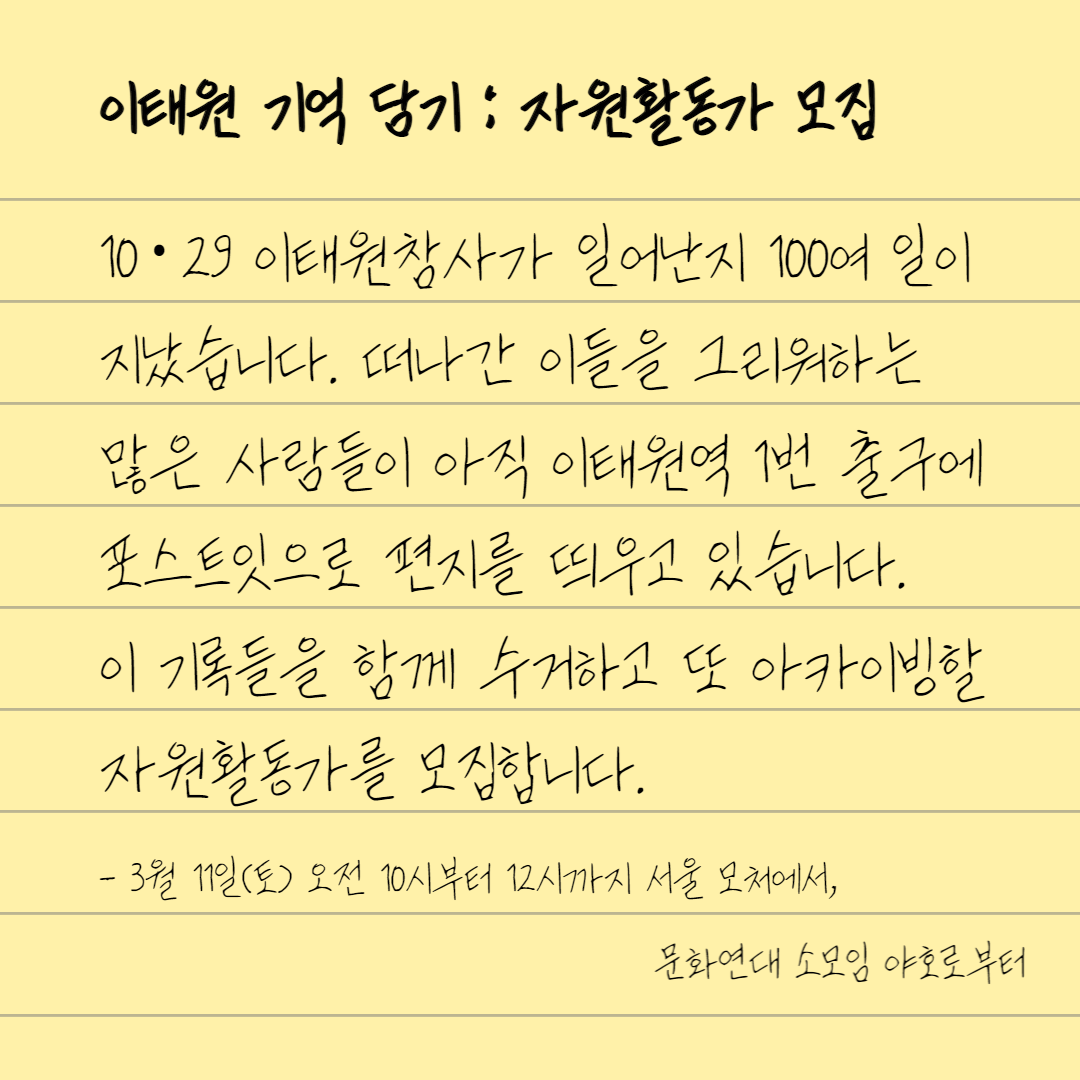 이태원 기억 담기 : 자원활동가 모집
10·29 이태원참사가 일어난지 100여 일이
지났습니다. 떠나간 이들을 그리워하는
많은 사람들이 아직 이태원역 1번 출구에
포스트잇으로 편지를 띄우고 있습니다.
이 기록들을 함께 수거하고 또 아카이빙할
자원활동가를 모집합니다.
- 3월 11일(토) 오전 10시부터 12시까지 서울 모처에서,
문화연대 소모임 야호로부터